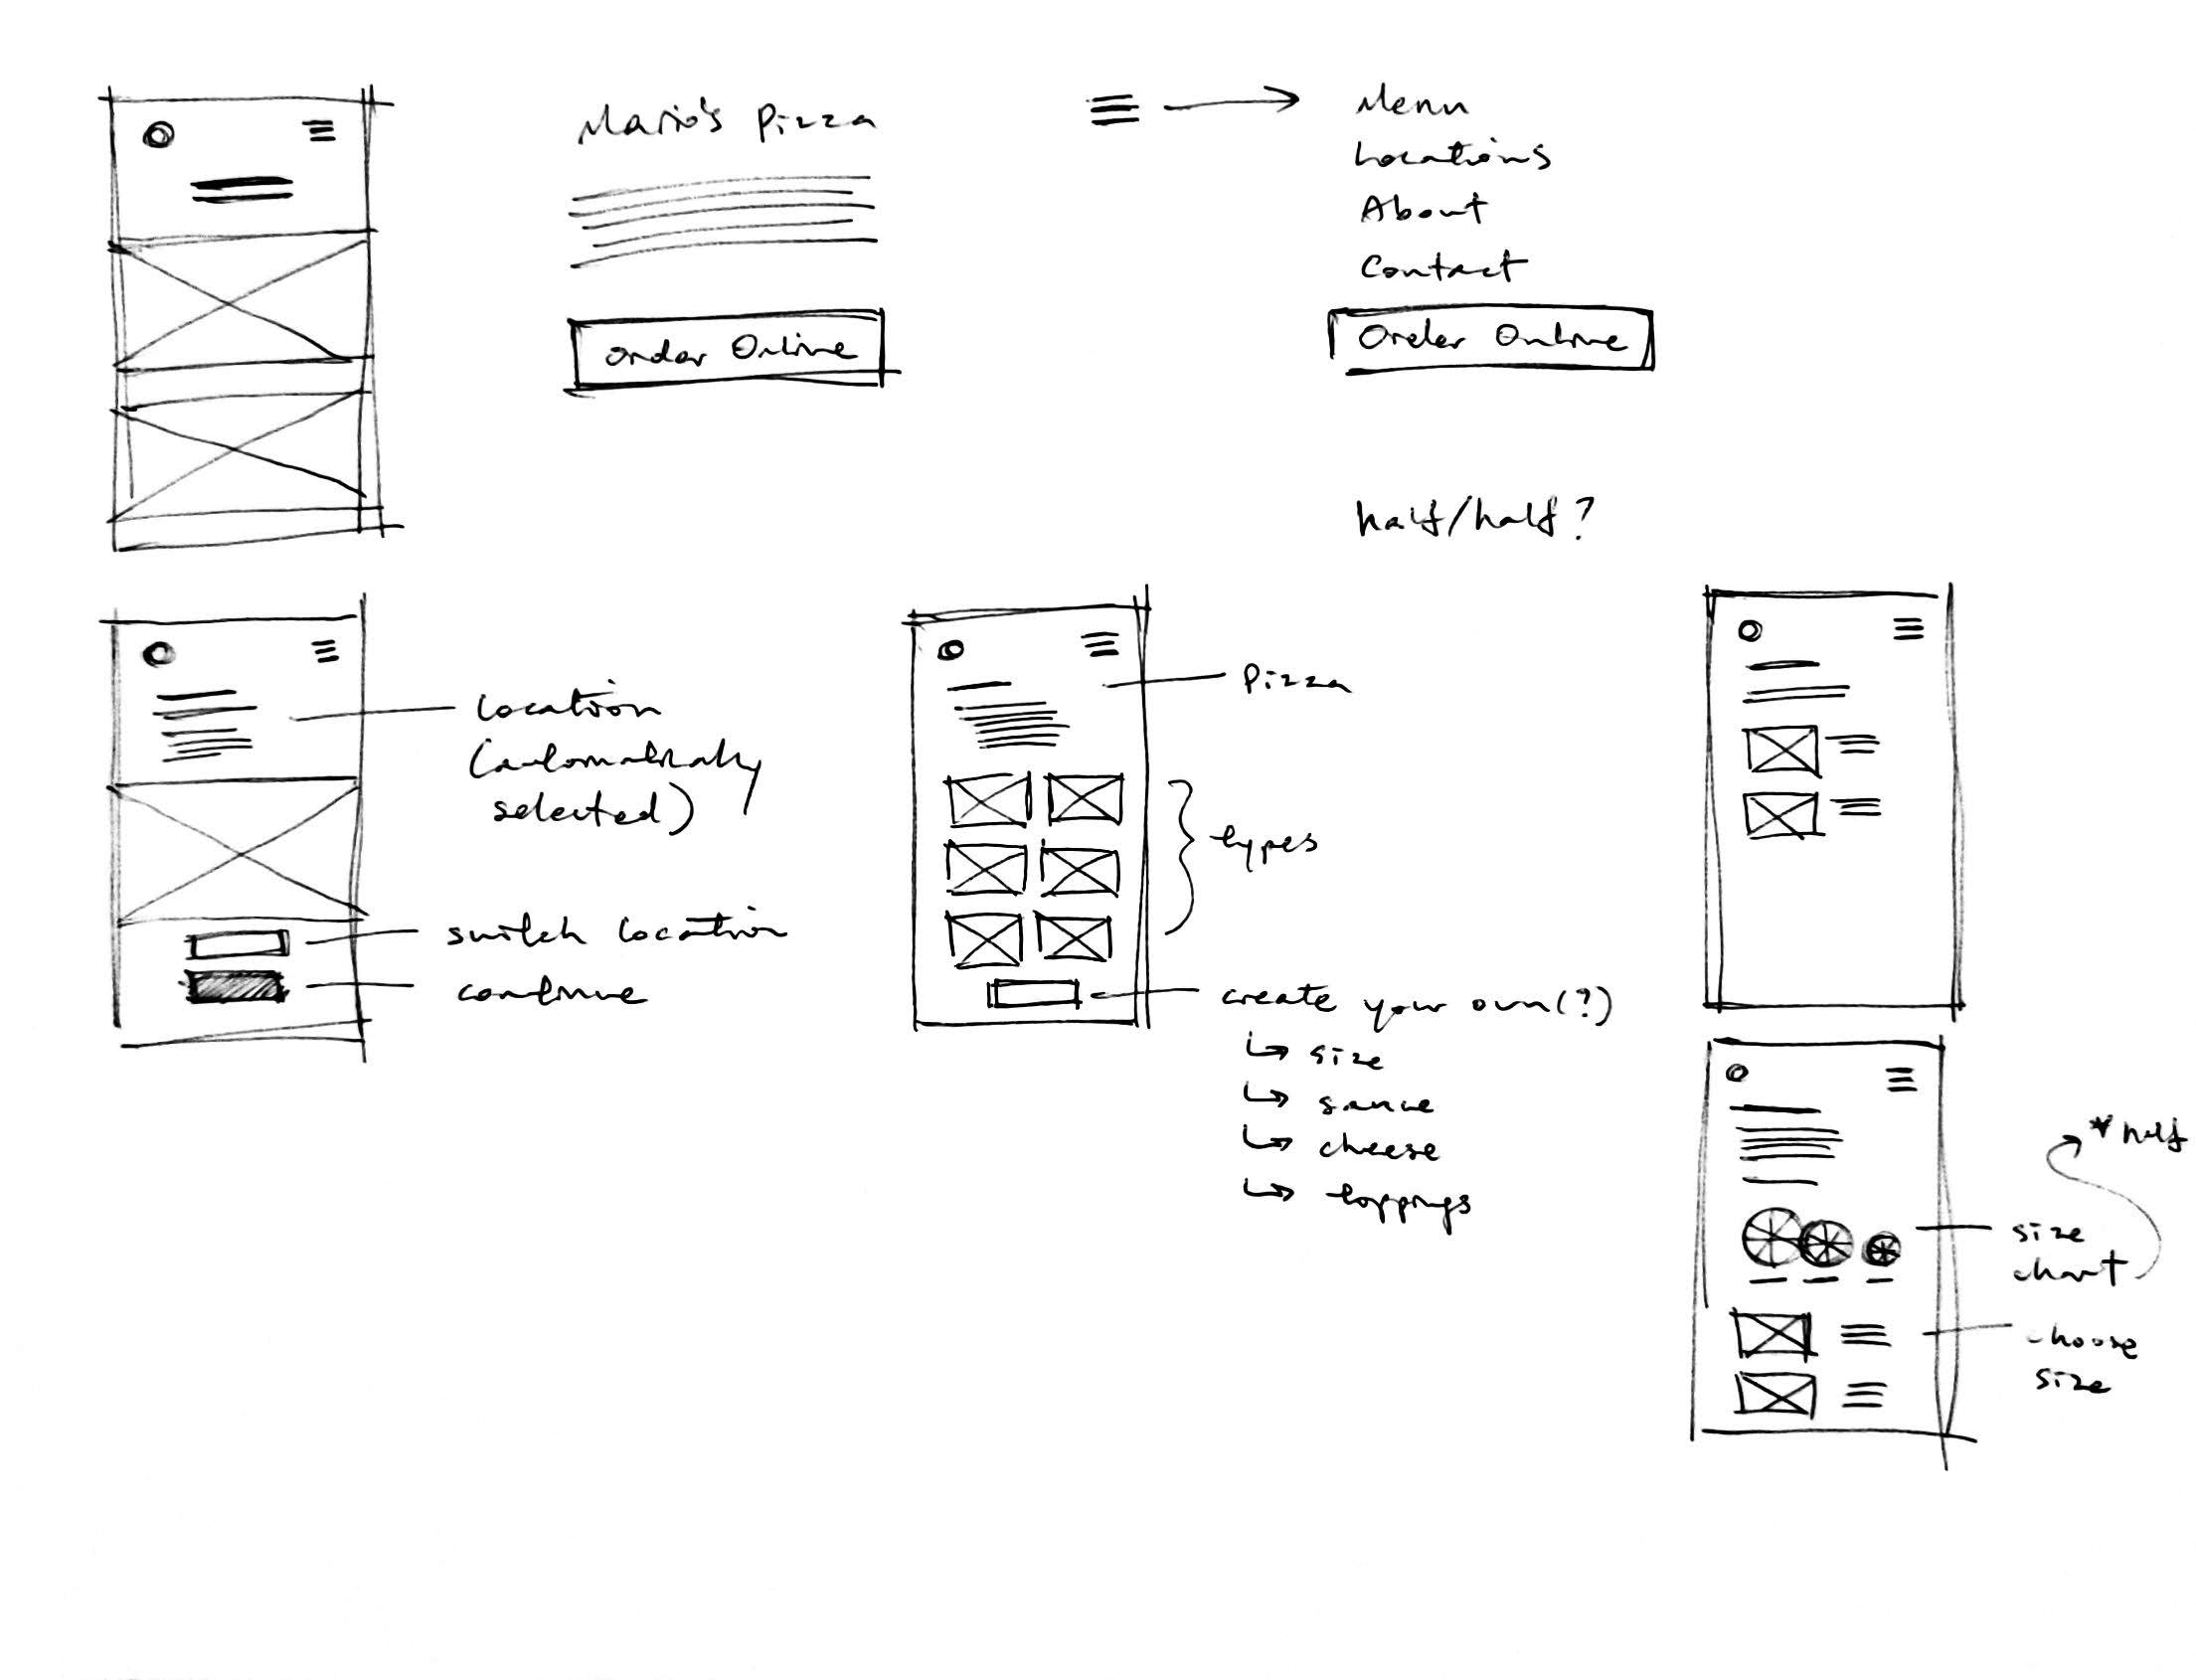 Mario's Pizza
Order Online
Menu
Locations
About
Contact
Order Online
half/half?
Location
(automatically
selected)
switch location
continue
Pizza
types
create your own(?)
size
sauce
cheese
toppings
*half
size
chart
choose
size